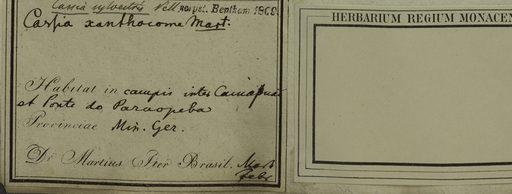 Cassia sylvestris Vell
revis. Bentham 1869.
Cassia xanthocoma Mart.
Habitat in campis inter
et Ponte do Paraopeba
Provinciae Min. Ger.
Dr Martius Iter Brasil. Mart
Febr
HERBARIUM REGIUM MONACEN